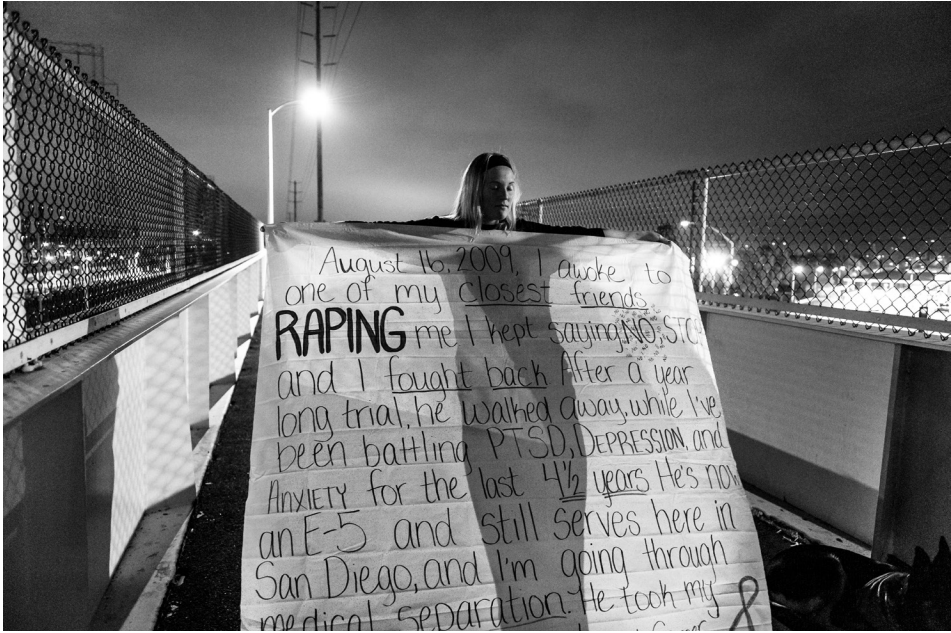 August 16, 2009, I awoke to
one of my closest friends
RAPING me I kept saying NO, STOP
and I fought back After a year
long trial, he walked away, while I've
been battling PTSD, DEPRESSION, and
ANXIETY for the last 4½ years He's now
an E-5 and still serves here in
San Diego, and I'm going through
medical separation. He took my